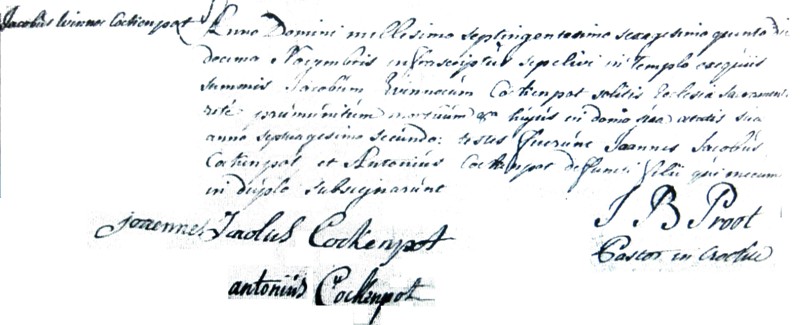 Jacobus Winnoc Cockenpot
Anno Domini millesimo septingentesimo sexagesimo quinto die
decima Novembris infrascriptus sepelivi in templo exequiis
summis Jacobum Winnocum Cockenpot solitis Ecclesiæ Sacramentis
rite præmunitum mortuum hujus in domo sua ætatis suæ
anno septuagesimo secundo: testes fuerunt Joannes Jacobus
Cockenpot et Antonius Cockenpot defuncti filii qui mecum
in duplo subsignarunt
J B Proot
Joannes Jacobus Cockenpot
Pastor in Crochte
antonius Cockenpot